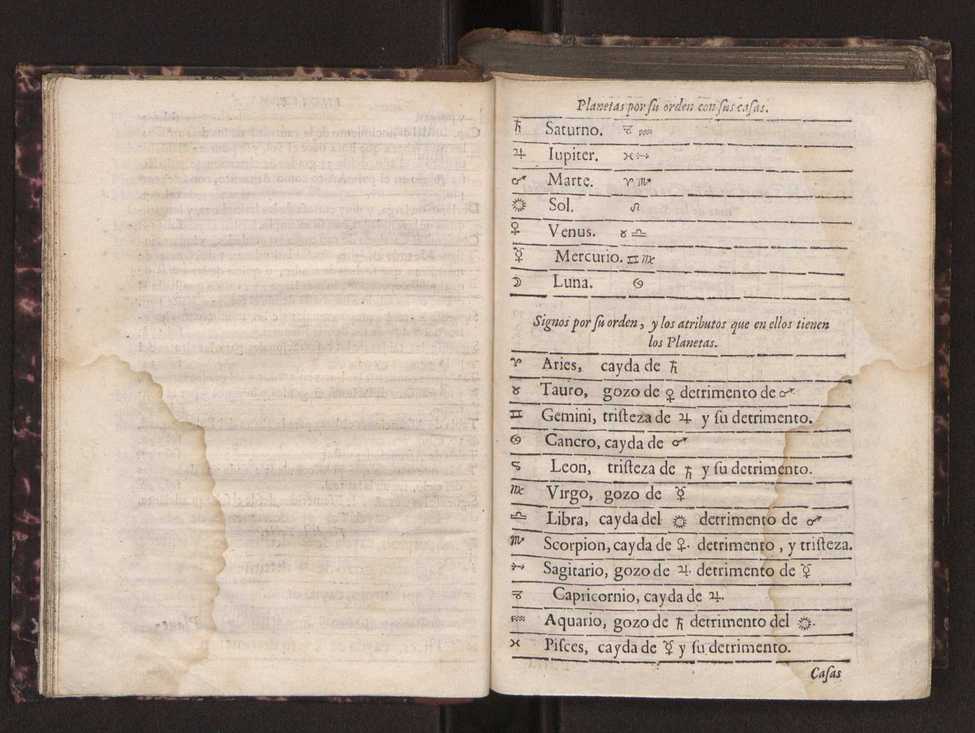 Planetas por su orden con sus casas.
♄ Saturno. ♑ ♒
♃ Iupiter. ♓ ♐
♂ Marte. ♈ ♏
☼ Sol. ♌
♀ Venus. ♉ ♎
☿ Mercurio. ♊ ♍
☽ Luna. ♋
Signos por ſu orden, y los atributos que en ellos tienen
los Planetas.
♈ Aries, cayda de ♄
♉ Tauro, gozo de ♀ detrimento de ♂
♊ Gemini, triſteza de ♃ y ſu detrimento.
♋ Cancro, cayda de ♂
♌ Leon, triſteza de ♄ y ſu detrimento.
♍ Virgo, gozo de ☿
♎ Libra, cayda del ☼ detrimento de ♂
♏ Scorpion, cayda de ♀. detrimento, y triſteza.
♐ Sagitario, gozo de ♃ detrimento de ☿
♑ Capricornio, cayda de ♃
♒ Aquario, gozo de ♄ detrimento del ☼.
♓ Piſces, cayda de ☿ y ſu detrimento.
Caſas